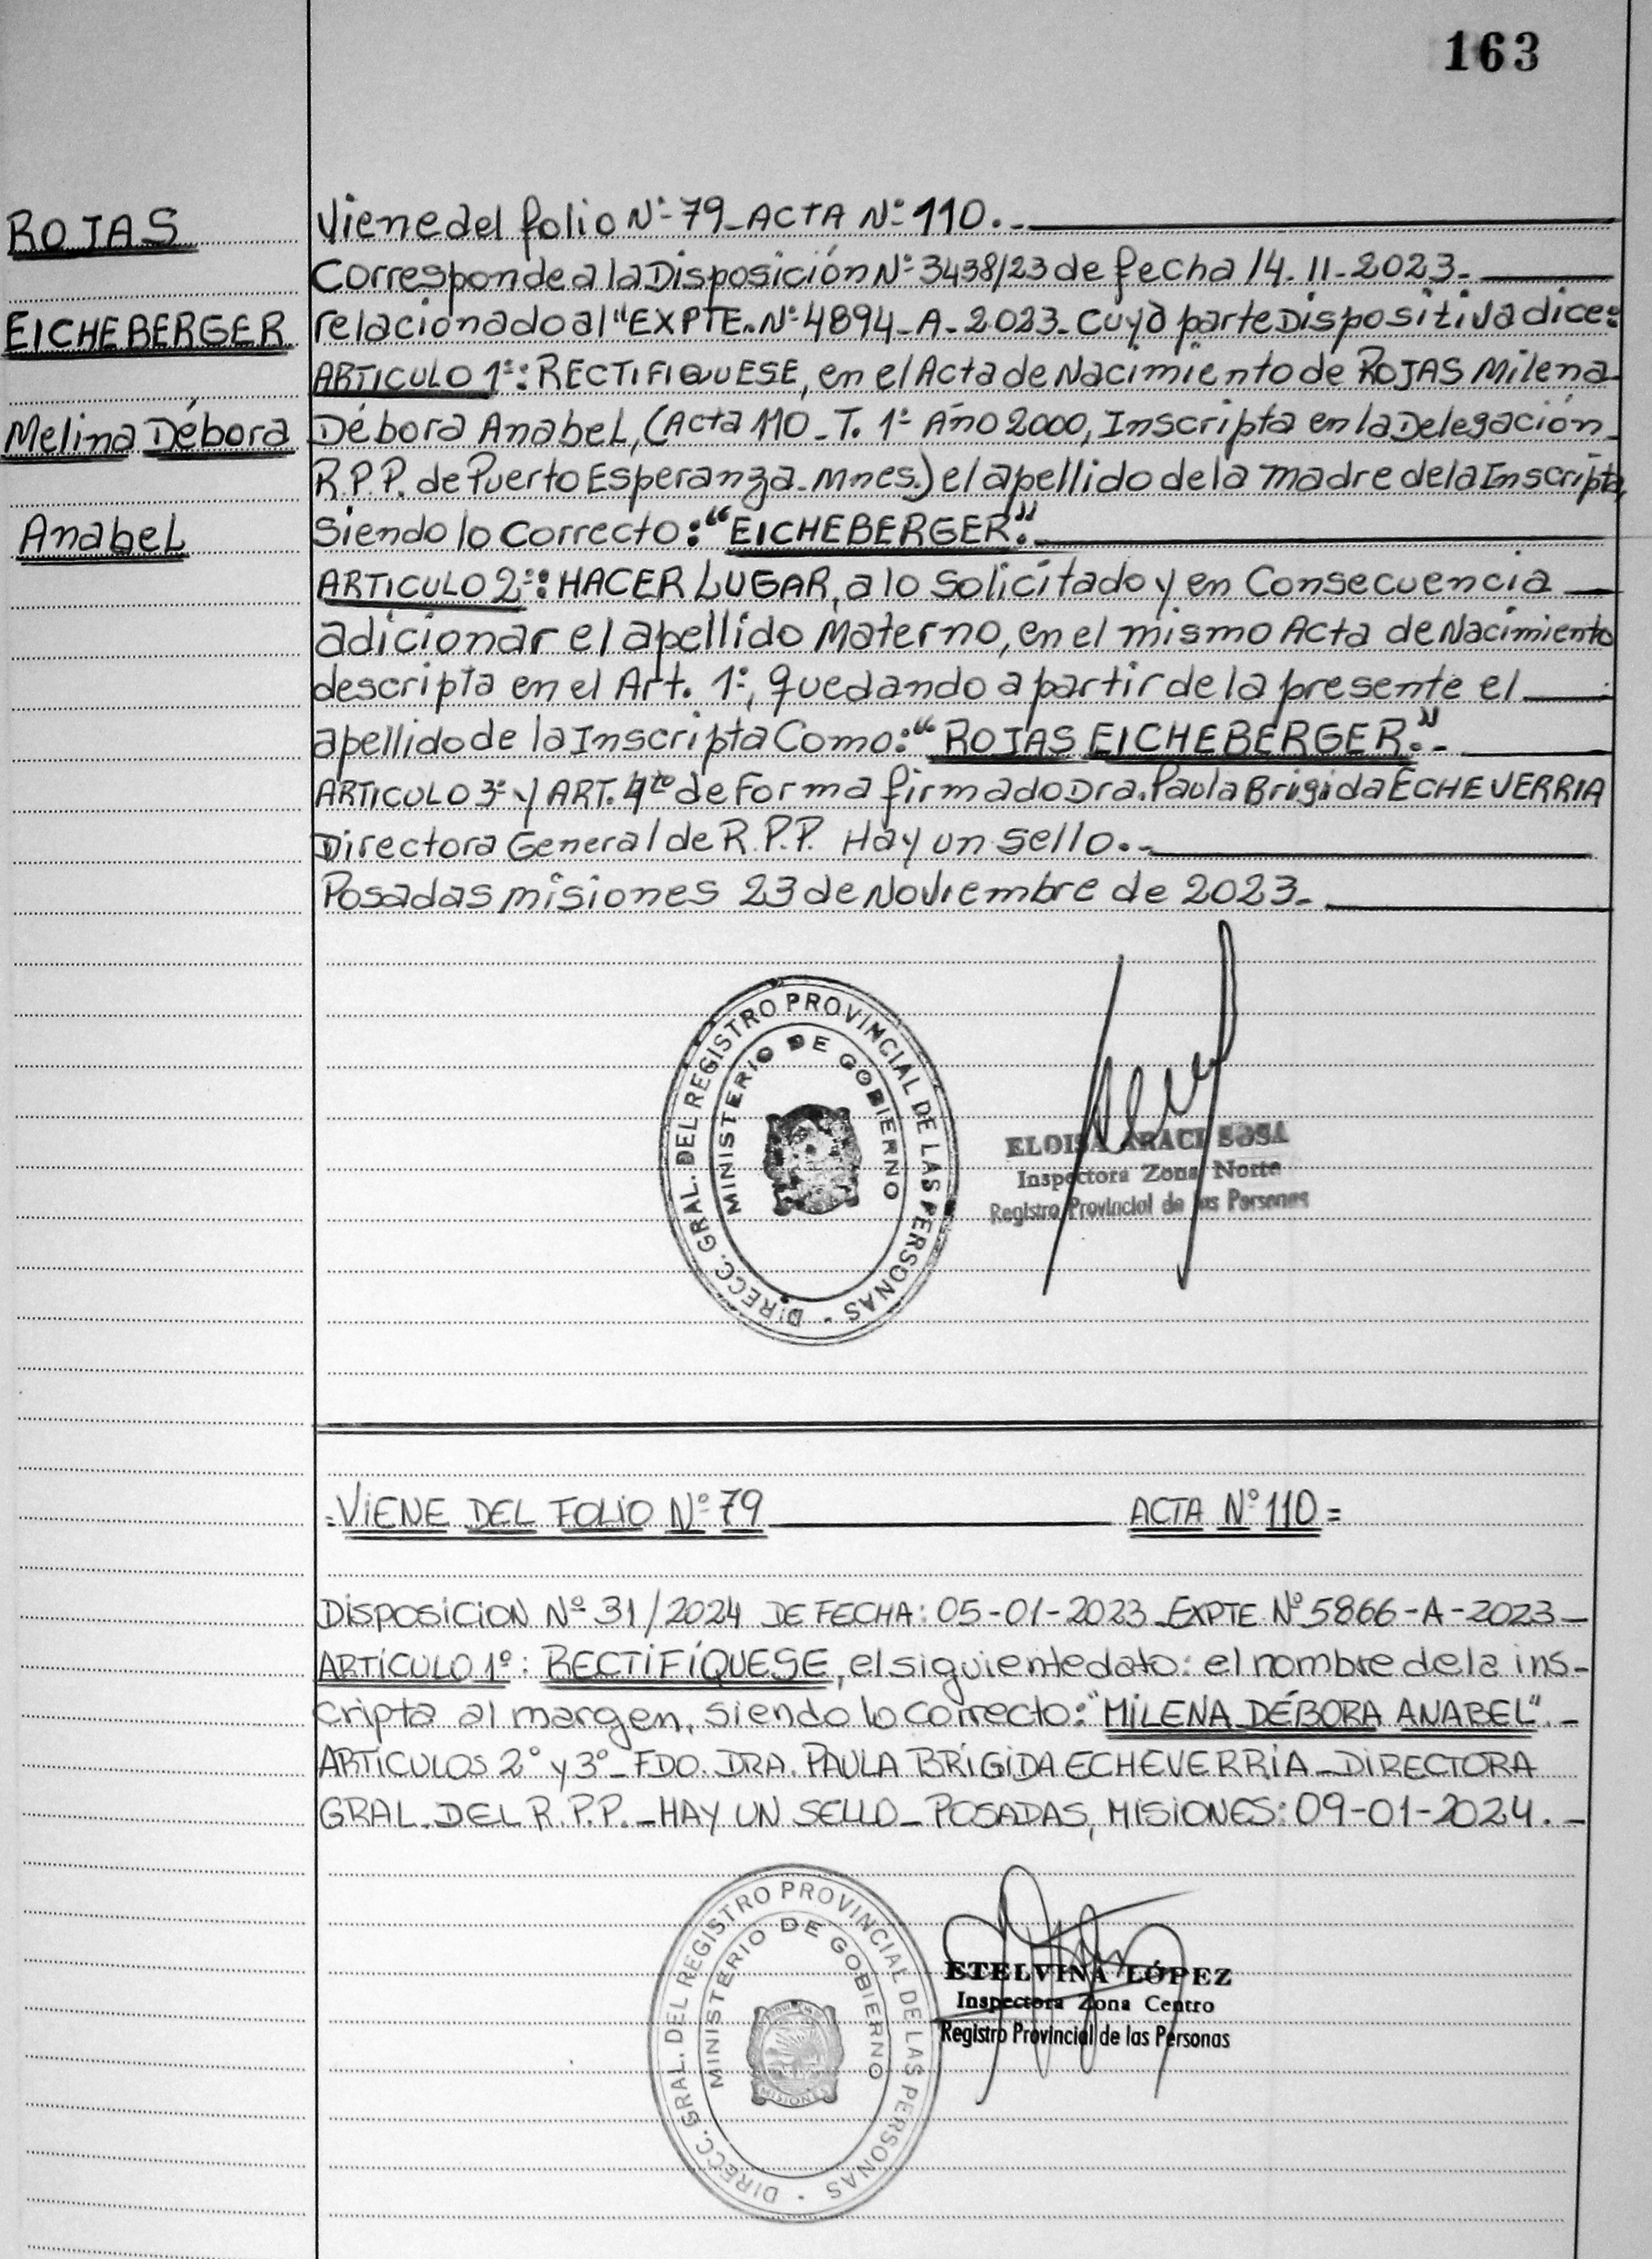 163
ROJAS
EICHEBERGER
Melina Débora
Anabel
Viene del folio Nº 79_ACTA Nº 110._
Corresponde a la Disposición Nº 3438/23 de fecha 14-11-2023._
relacionado al "EXPTE. Nº 4894_A_2023_Cuya parte Dispositiva dice:
ARTICULO 1º: RECTIFIQUESE, en el Acta de Nacimiento de ROJAS Milena
Débora Anabel, (Acta 110_T. 1º Año 2000, Inscripta en la Delegación
R.P.P. de Puerto Esperanza_Mnes.) el apellido de la madre de la Inscripta,
Siendo lo Correcto: "EICHEBERGER."
ARTICULO 2º: HACER LUGAR, a lo Solicitado y en Consecuencia
adicionar el apellido Materno, en el mismo Acta de Nacimiento
descripta en el Art. 1º, quedando a partir de la presente el
apellido de la Inscripta Como: "ROJAS EICHEBERGER."-
ARTICULO 3º y ART. 4to de Forma firmado Dra. Paula Brigida ECHEVERRIA
Directora General de R.P.P. Hay un sello.-
Posadas misiones 23 de Noviembre de 2023-
DIRECC. GRAL. DEL REGISTRO PROVINCIAL DE LAS PERSONAS -
MINISTERIO DE GOBIERNO
ELOISA ARACI SOSA
Inspectora Zona Norte
Registro Provincial de las Personas
=VIENE DEL FOLIO Nº 79 ACTA Nº 110=
DISPOSICION Nº 31/2024 DE FECHA: 05-01-2023_EXPTE Nº 5866-A-2023-
ARTÍCULO 1º: RECTIFÍQUESE, el siguiente dato: el nombre de la ins-
cripta al margen, siendo lo correcto: "MILENA DÉBORA ANABEL".-
ARTÍCULOS 2º y 3º_FDO. DRA. PAULA BRÍGIDA ECHEVERRÍA_DIRECTORA
GRAL. DEL R.P.P._HAY UN SELLO_POSADAS, MISIONES: 09-01-2024.-
DIRECC. GRAL. DEL REGISTRO PROVINCIAL DE LAS PERSONAS -
MINISTERIO DE GOBIERNO
MISIONES
ETELVINA LÓPEZ
Inspectora Zona Centro
Registro Provincial de las Personas